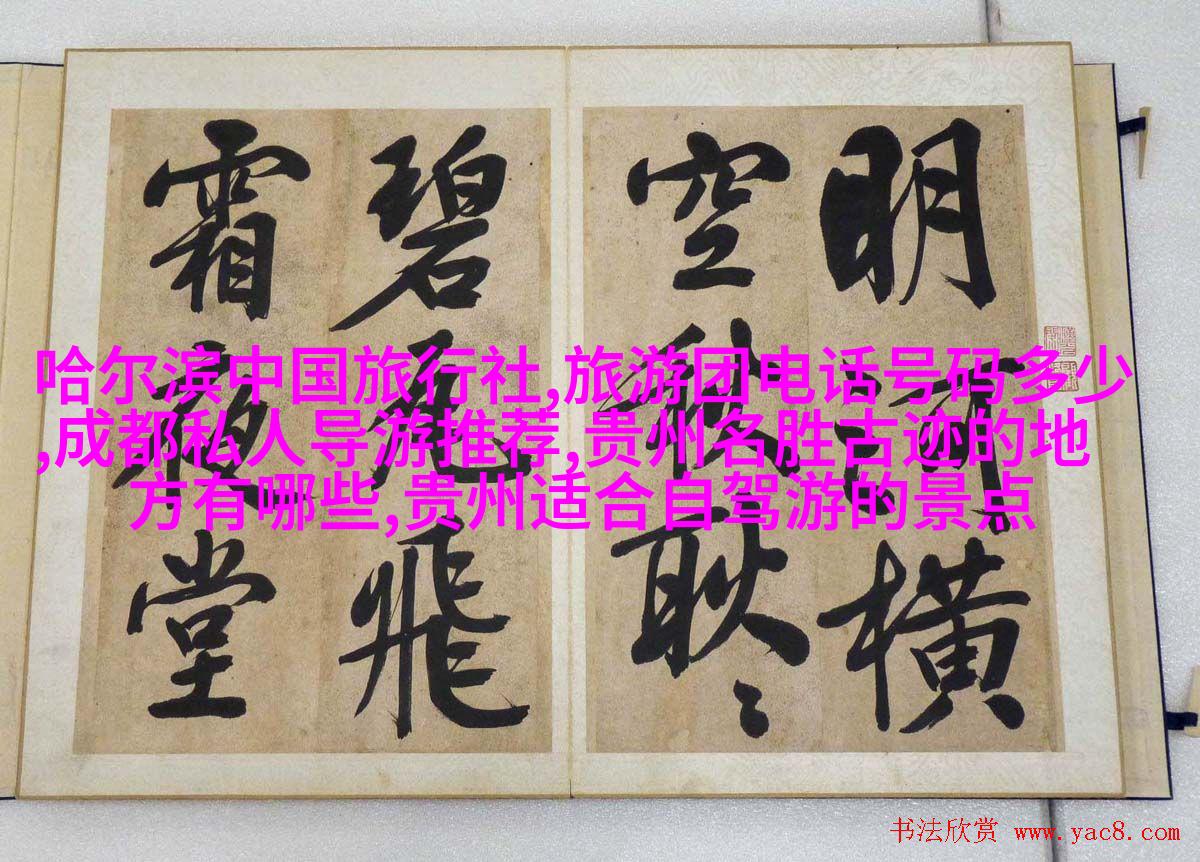 明河横
空秋耿々
碧瓦飛
霜夜堂
哈尔滨中国旅行社,旅游团电话号码多少
,成都私人导游推荐,贵州名胜古迹的地
方有哪些,贵州适合自驾游的景点
书法欣赏 www.yac8.com